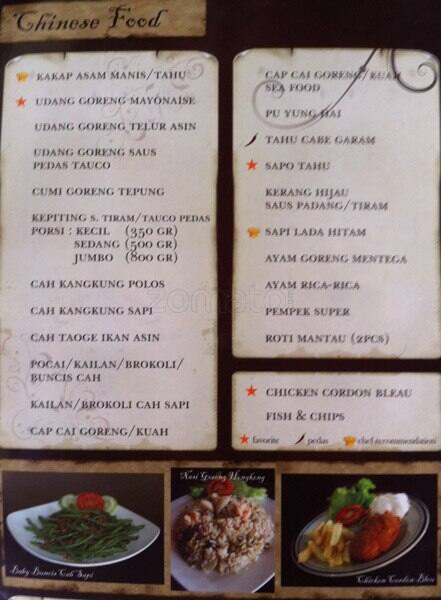 Chinese Food
KAKAP ASAM MANIS/TAHU
UDANG GORENG MAYONAISE
UDANG GORENG TELUR ASIN
UDANG GORENG SAUS
PEDAS TAUCO
CUMI GORENG TEPUNG
KEPITING S. TIRAM/TAUCO PEDAS
PORSI : KECIL (350 GR)
SEDANG (500 GR)
JUMBO (800 GR)
CAH KANGKUNG POLOS
CAH KANGKUNG SAPI
CAH TAOGE IKAN ASIN
POCAI/KAILAN/BROKOLI/
BUNCIS CAH
KAILAN/BROKOLI CAH SAPI
CAP CAI GORENG/KUAH
CAP CAI GORENG/KUAH
SEA FOOD
PU YUNG HAI
TAHU CABE GARAM
SAPO TAHU
KERANG HIJAU
SAUS PADANG/TIRAM
SAPI LADA HITAM
AYAM GORENG MENTEGA
AYAM RICA-RICA
PEMPEK SUPER
ROTI MANTAU (2PCS)
CHICKEN CORDON BLEAU
FISH & CHIPS
favorite pedas chef recommendation
zomato
Baby Buncis Cah Sapi
Nasi Goreng Hongkong
Chicken Cordon Bleu